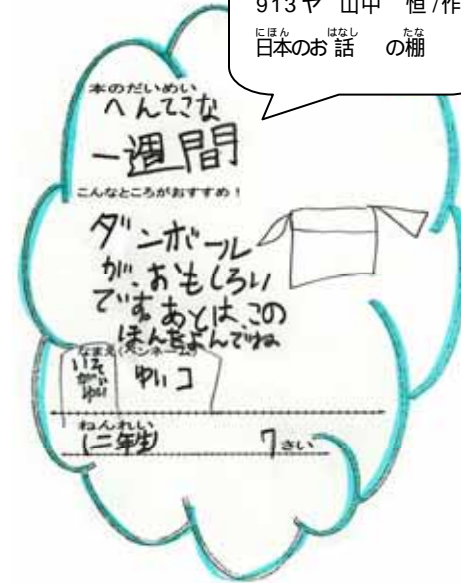 913ヤ 山中 恒/作
日本のお話 の棚
本のだいめい
へんてこな
一週間
こんなところがおすすめ!
ダンボール
が、おもしろい
です。あとは、この
ほんをよんでね
なまえ(ペンネーム)
ゆいコ
ねんれい
(二年生) 7さい